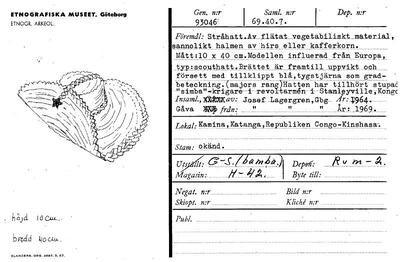 ETNOGRAFISKA MUSEET, Göteborg
ETNOGR. ARKEOL.
höjd 10cm.
bredd 40cm.
ELANDERS, GBG. 2687. 2. 67.
Gen. n:r Saml. n:r Dep. n:r
93046 69.40.7.
Föremål: Stråhatt. Av flätat vegetabiliskt material,
sannolikt halmen av hirs eller kafferkorn.
Mått:10 x 40 cm. Modellen influerad från Europa,
typ:scouthatt. Brättet är framtill uppvikt och
försett med tillklippt blå, tygstjärna som grad-
beteckning.(majors rang) Hatten har tillhört stupad
"simba"-krigare i revoltarmén i Stanleyville, Kongo
Insaml. av: Josef Lagergren,Gbg År: 1964.
Gåva från: " " " År: 1969.
Lokal: Kamina, Katanga, Republiken Congo-Kinshasa.
Stam: okänd.
Utställt: G-S. (bamba.) Depon: Rum-2.
Magasin: H-42. Byte till:
Negat. n:r Bild n:r
Skiopt. n:r Kliché n:r
Publ.